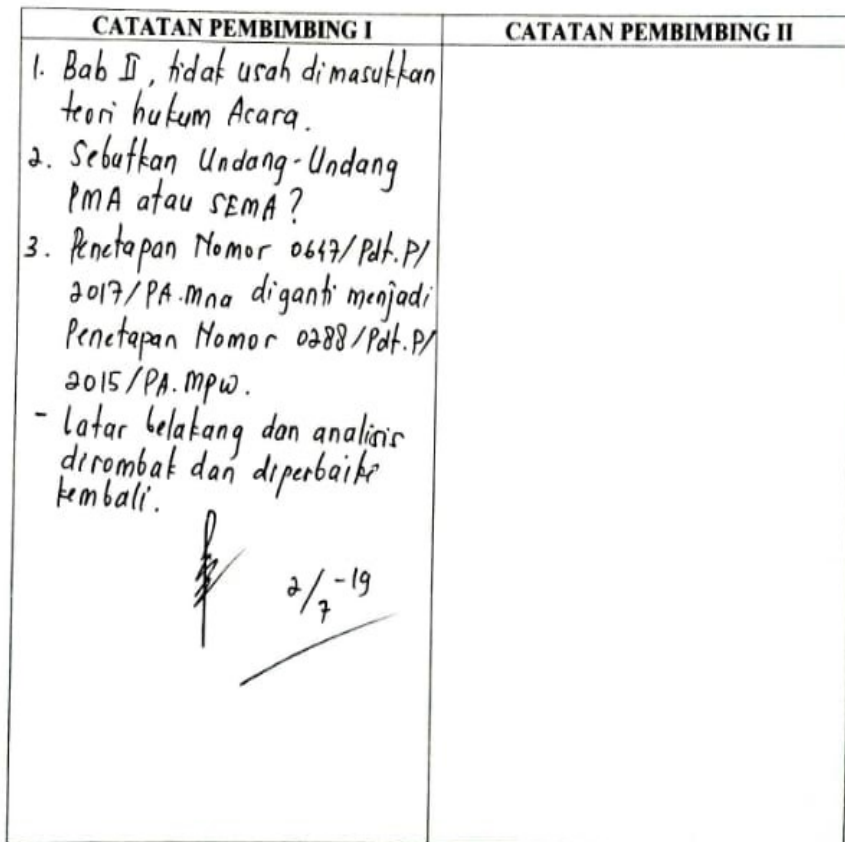 CATATAN PEMBIMBING I
CATATAN PEMBIMBING II
1. Bab II, tidak usah dimasukkan
teori hukum Acara.
2. Sebutkan Undang-Undang
PMA atau SEMA?
3. Penetapan Nomor 0647/Pdt.P/
2017/PA.Mna diganti menjadi
Penetapan Nomor 0288/Pdt.P/
2015/PA.Mpw.
- Latar belakang dan analisis
dirombak dan diperbaiki
kembali.
2/7-19